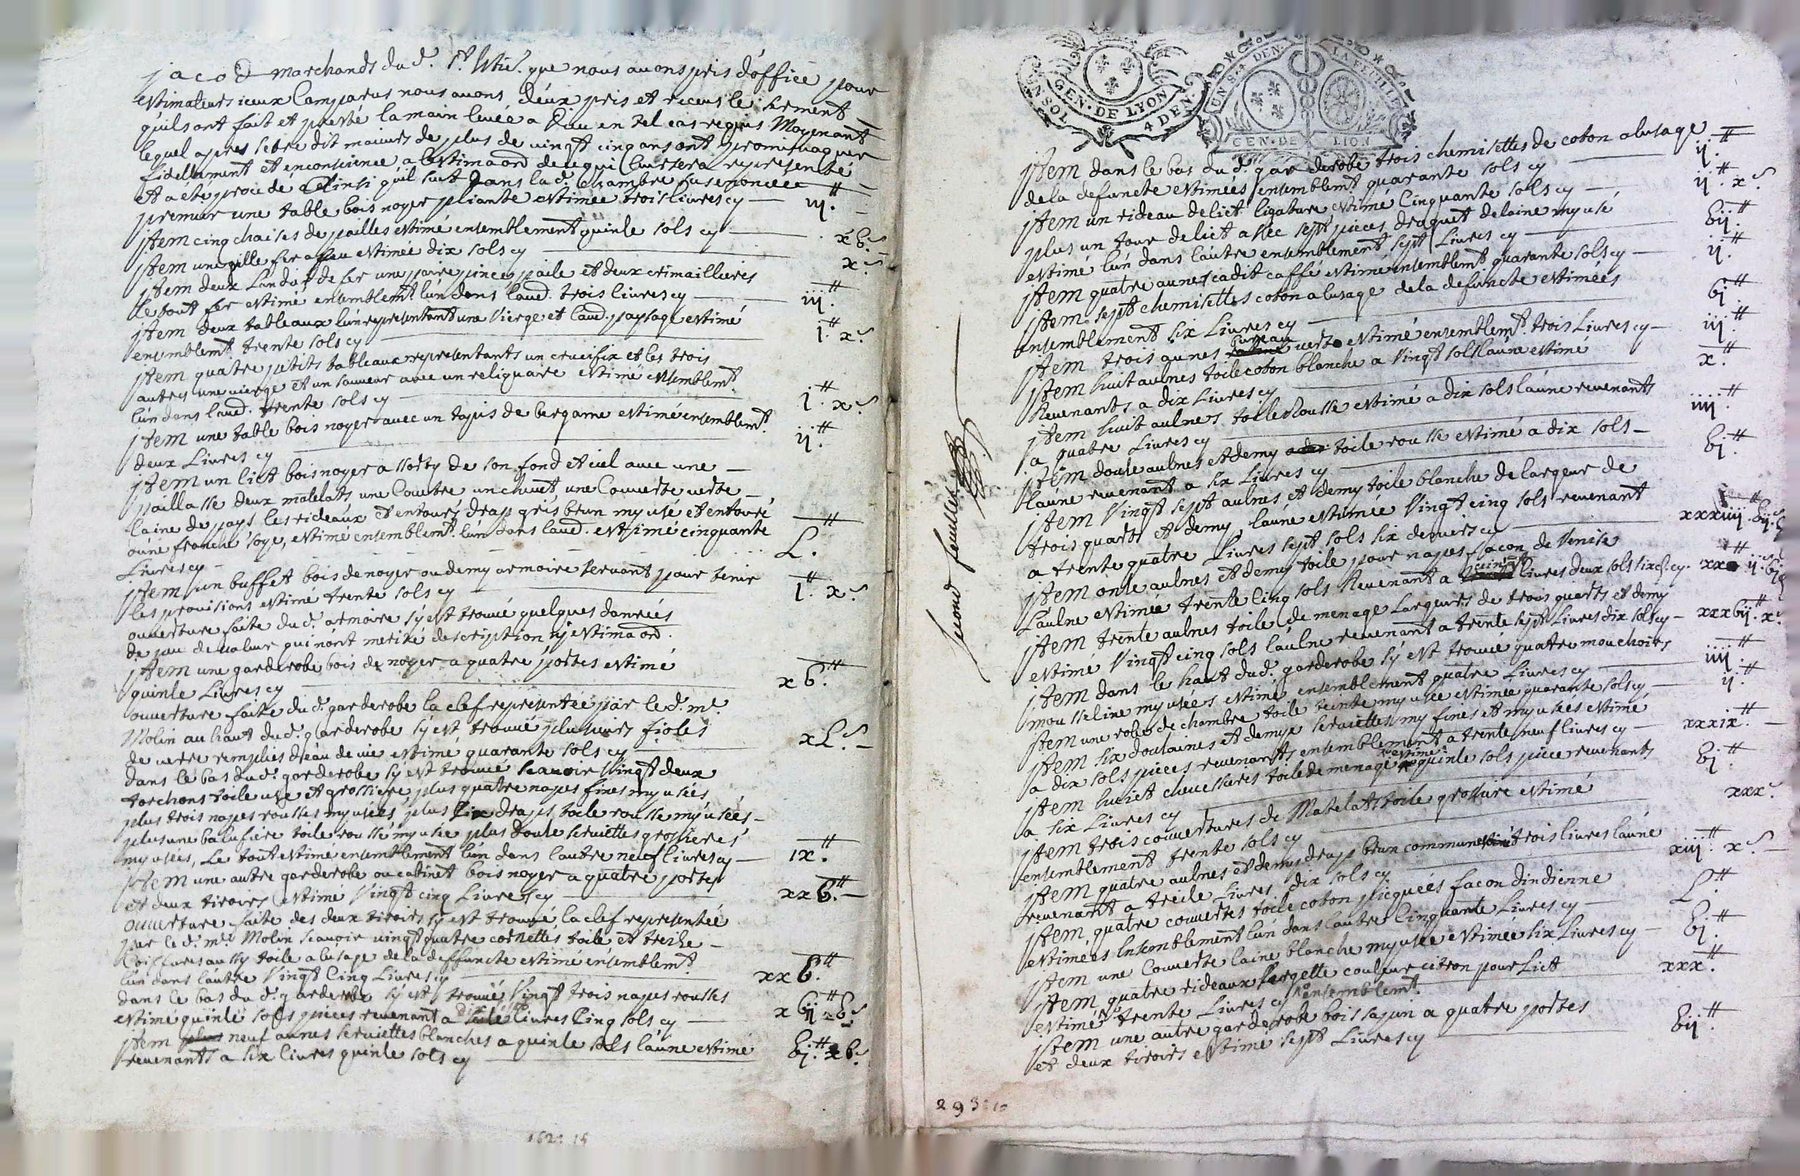 jacod marchands du d. Sr. que nous avons pris d'office pour
estimateurs iceux Comparus nous avons deux pris et receus le serment
quils ont fait et presté la main levée a Dieu en tel cas requis Moyenant
lequel apres sestre dit majeurs de plus de vingt cinq ans ont promis vaquer
fidellement et en consience a lestimaon de ce qui leur sera representé
Et a été procédé Ainsi quil suit Dans la d. chambre sus enoncée
premier une table bois noyer pliante estimée trois livres cy — iij.tt
jtem cinq chaises de pailles estimé ensemblement quinse sols cy — xb.s
jtem une grille fer a feu estimée dix sols cy — x.s
jtem deux Landof de fer une paire pinces paile et deux crimaillieres
le tout fer estimé ensemblemt. lun dans laud. trois livres cy — iij.tt
jtem deux tableaux lun representant une vierge et laud. paysage estimé
ensemblemt. trente sols cy — j.tt x.s
jtem quatre petits tableaux representants un crucifix et les trois
autres une vierge et un sauveur avec un reliquaire estimé ensemblemt.
lun dans laud. trente sols cy — j.tt x.s
jtem une table bois noyer avec un tapis de bergame estimé ensemblemt.
deux Livres cy — ij.tt
jtem un lict bois noyer assorty de son fond et ciel avec une
paillasse deux matelats une Couetre un chevet, une Couverte verte
laine de pays les rideaux et entours drap gris brun my usé et entouré
dune franche soye, estimé ensemblemt. lun dans laud. estimé cinquante
Livres cy — L.tt
jtem un buffet bois de noyer ou demy armoire servant pour tenir
les provisions estimé trente sols cy — j.tt x.s
ouverture faite du d. armoire sy est trouvé quelques danrées
de peu de valeur qui nont merité description ny estimaon.
jtem une garderobe bois de noyer a quatre portes estimé
quinse Livres cy — xb.tt
ouverture faite du d. garderobe la clef representée par le d. me.
Molin au haut du d. garderobe sy est trouvé plusieurs fioles
de verre remplies deau de vie estimé quarante sols cy — xL.s
dans le bas du d. garderobe sy est trouvé scavoir vingt deux
torchons toile use et grossiere plus quatre napes fines my usés
plus trois napes rousses my usées plus six draps toile rousse my usées
plus une toile rousse my usée plus douse serviettes grossieres
my usées, Le tout estimé ensemblement lun dans lautre neuf livres cy — ix.tt
jtem une autre garderobe ou cabinet bois noyer a quatre portes
et deux tiroirs estimé Vingt cinq Livres cy — xxb.tt
ouverture faite des deux tiroirs sy est trouvé la clef representée
par le d. me. Molin scavoir vingt quatre cornettes toile et treise
coiffures aussy toile a lusage de la deffuncte estimé ensemblemt.
lun dans lautre Vingt Cinq Livres cy — xxb.tt
dans le bas du d. garderobe sy est trouvés Vingt trois napes rousses
estimé quinse sols pieces revenant a livres Cinq sols cy — xbij.tt b.s
jtem neuf aunes serviettes blanches a quinse sols laune estimé
revenants a six livres quinse sols cy — bj.tt xb.s
162: 15
GEN. DE LYON
4 DEN.
UN S. 4 DEN. LA FEUILLE
GEN. DE LION
jtem dans le bas du d. garderobe trois chemisettes de coton a lusage
de la defuncte estimées ensemblemt. quarante sols cy — ij.tt
jtem un rideau de lict ligature estimé Cinquante sols cy — ij.tt x.s
plus un tour de lict avec sept pieces droguet de laine my usé
estimé lun dans lautre ensemblement sept Livres cy — bij.tt
jtem quatre aunes cadit caffé estimé ensemblemt. quarante sols cy — ij.tt
jtem sept chemisettes coton a lusage de la defuncte estimées
ensemblement six Livres cy — bj.tt
jtem trois aunes bureau verte estimé ensemblemt. trois Livres cy — iij.tt
jtem huit aulnes toile coton blanche a Vingt sols laune estimé
Revenants a dix Livres cy — x.tt
jtem huit aulnes toile Rousse estimé a dix sols laune revenants
a quatre Livres cy — iiij.tt
jtem douse aulnes et demy toile rousse estimé a dix sols
laune revenant a six Livres cy — bj.tt
jtem Vingt sept aulnes et demy toile blanche de largeur de
trois quarts et demy laune estimée Vingt cinq sols revenant
a trente quatre Livres sept sols six deniers cy — xxxiiij.tt bij.s
jtem onse aulnes et demy toile pour napes facon de Venise
Laulne estimée trente Cinq sols Revenant a livres deux sols six d. cy — xx.tt ij.s
jtem trente aulnes toile de menage Largeurs de trois quarts et demy
estimé Vingt cinq sols laulne revenant a trente sept Livres dix sols cy — xxxbij.tt x.s
jtem dans le haut du d. garderobe sy est trouvé quatre mouchoirs
mousseline my usées estimé ensemblement quatre Livres cy — iiij.tt
jtem une robe de chambre toile teinte my usée estimée quarante sols cy — ij.tt
jtem six doutaines et demye serviettes my fines et my usées estimé
a dix sols pieces revenants ensemblement a trente neuf livres cy — xxxix.tt
jtem huict toile de menage estimé quinse sols piece revenants
a six Livres cy — bj.tt
jtem trois couvertures de Matelats toile grossiere estimé
ensemblement trente sols cy — xxx.s
jtem quatre aulnes et demy drap brun commun trois livres laune
revenant a treise Livres dix sols cy — xiij.tt x.s
jtem quatre couvertes toile coton picquées facon dindienne
estimées Ensemblement lun dans lautre Cinquante Livres cy — L.tt
jtem une Couverte laine blanche my usée estimée six Livres cy — bj.tt
jtem quatre rideaux sergette couleur citron pour Lict
estimé trente Livres cy ensemblemt. — xxx.tt
jtem une autre garderobe bois sapin a quatre portes
et deux tiroirs estimé sept Livres cy — bij.tt
second feuillet
293: